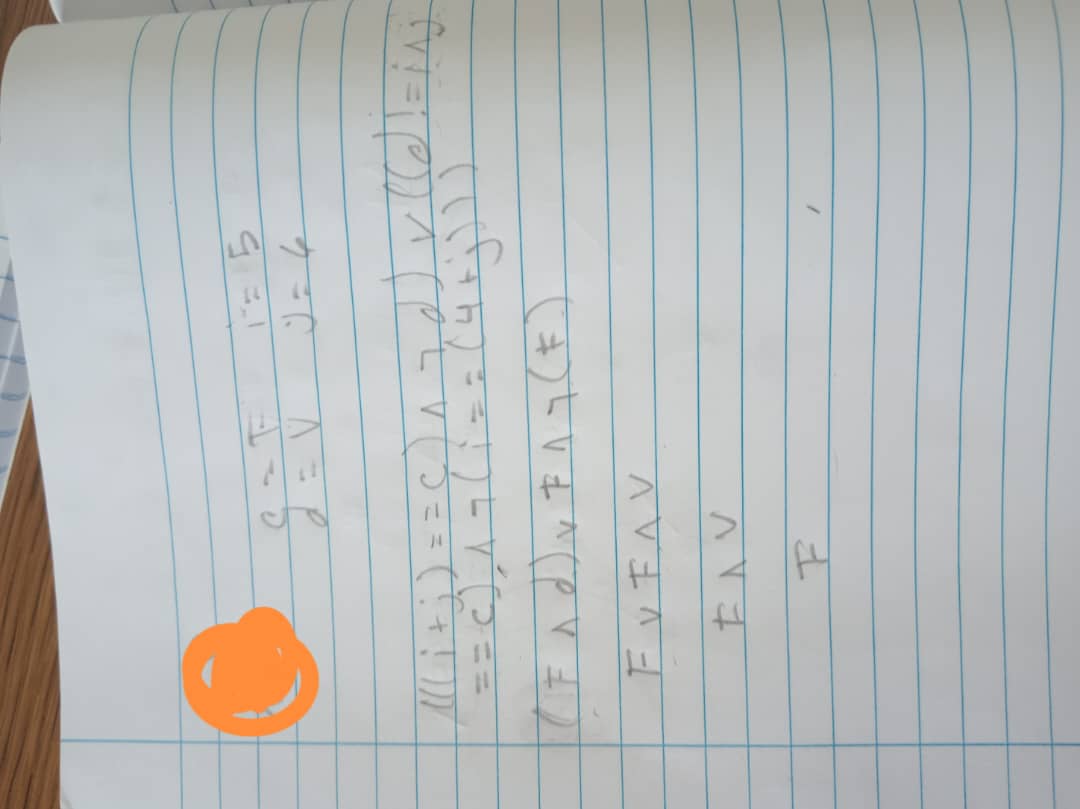 c = F i = 5
d = V j = 6
(((i+j) == c) ∧ ¬d) ∨ ((d != i ∧ j
== c) ∧ ¬(i == (4+j)))
(F ∧ d) ∨ F ∧ ¬(F)
F ∨ F ∧ V
F ∧ V
F